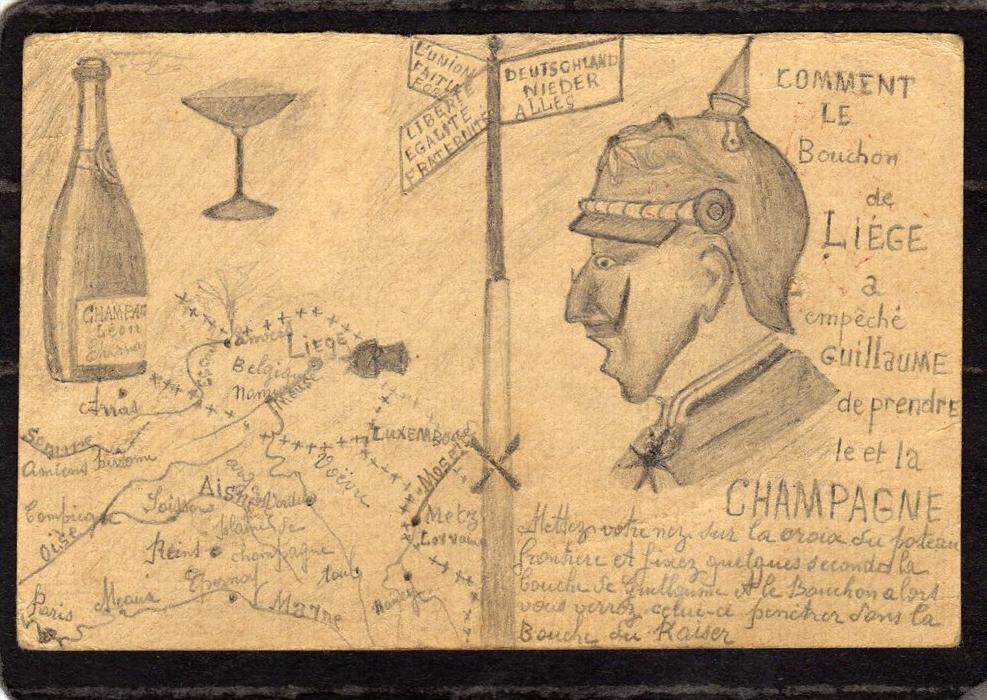 L'UNION
FAIT LA
FORCE
LIBERTÉ
EGALITÉ
FRATERNITÉ
DEUTSCHLAND
NIEDER
ALLES
COMMENT
LE
Bouchon
de
LIÉGE
a
empêché
GUILLAUME
de prendre
le et la
CHAMPAGNE
Mettez votre nez sur la croix du poteau
frontiere et fixez quelques secondes la
bouche de Guillaume et le Bouchon alors
vous verrez celui-ci penétrer dans la
Bouche du Kaiser
CHAMPAG
Léon
Liege
Belgique
Namur
Meuse
Arras
LUXEMBOURG
Somme
Amiens
Voëvre
Moselle
Aisne
Verdun
Soissons
Compiegne
Oise
Metz
Lorraine
Plaine de
champagne
Reims
Toul
Epernay
Nancy
Meaux
Marne
Paris